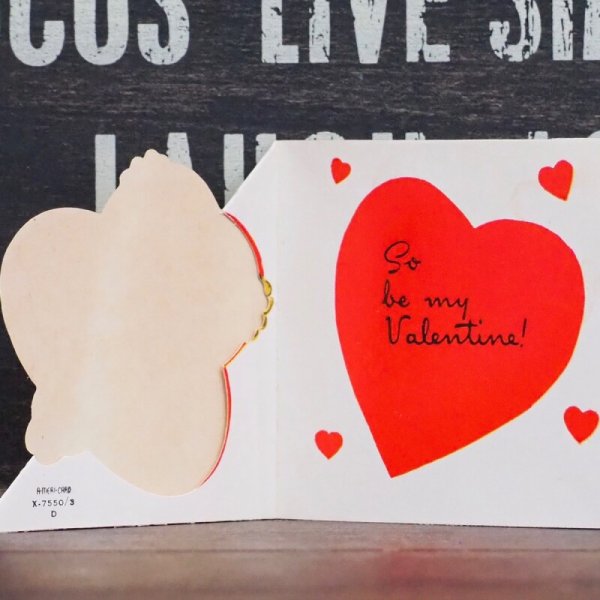 CUS LIVE SI
So
be my
Valentine!
AMERI-CARD
X-7550/3
D